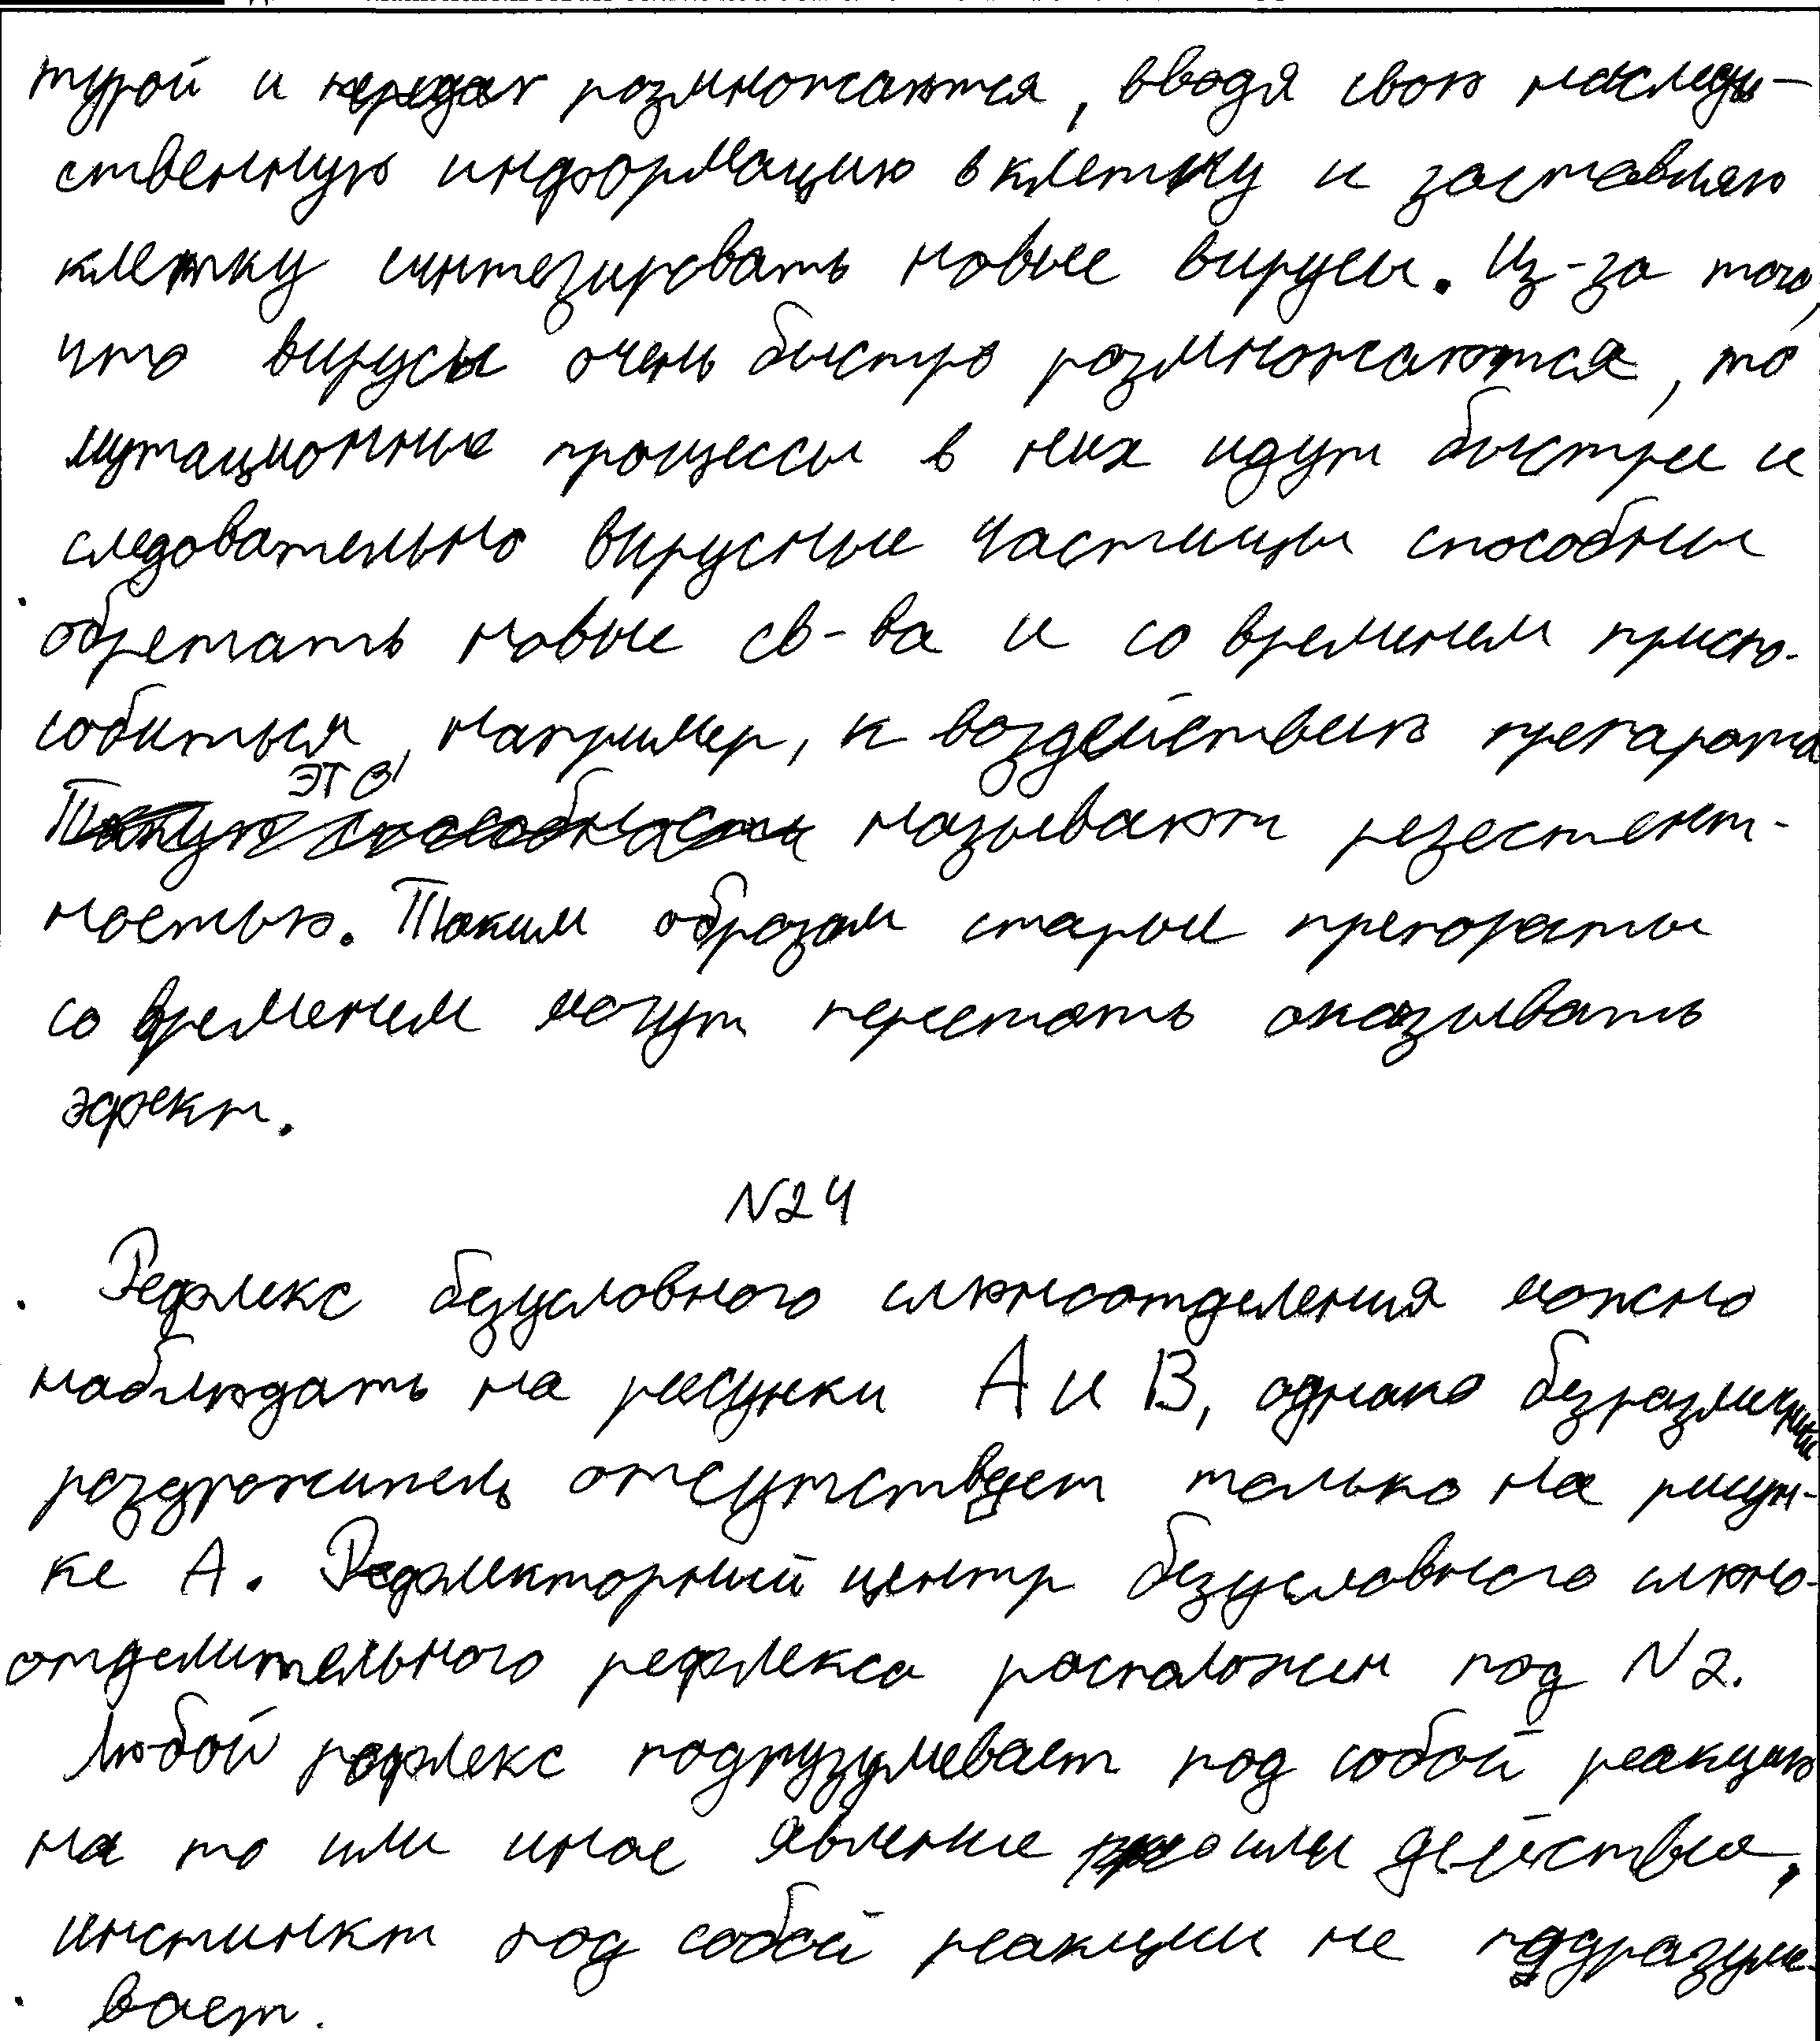 турой и передают размножаются, вводя свою наслед-
ственную информацию в клетку и заставляю
клетку синтезировать новые вирусы. Из-за того,
что вирусы очень быстро размножаются, то
мутационные процессы в них идут быстрее и
следовательно вирусные частицы способны
обретать новые св-ва и со временем приспо-
собиться, например, к воздействию препарата
это называют резестент-
ностью. Таким образом старые препараты
со временем могут перестать оказывать
эфект.
N24
Рефлекс безусловного слюноотделения можно
наблюдать на рисунки А и В, однако безразличный
раздражитель отсутствует только на рисун-
ке А. Рефлекторный центр безусловного слюно-
отделительного рефлекса расположен под N2.
Любой рефлекс подрузумевает под собой реакцию
на то или иное явление или действие,
инстинкт под собой реакции не подразуме-
вает.